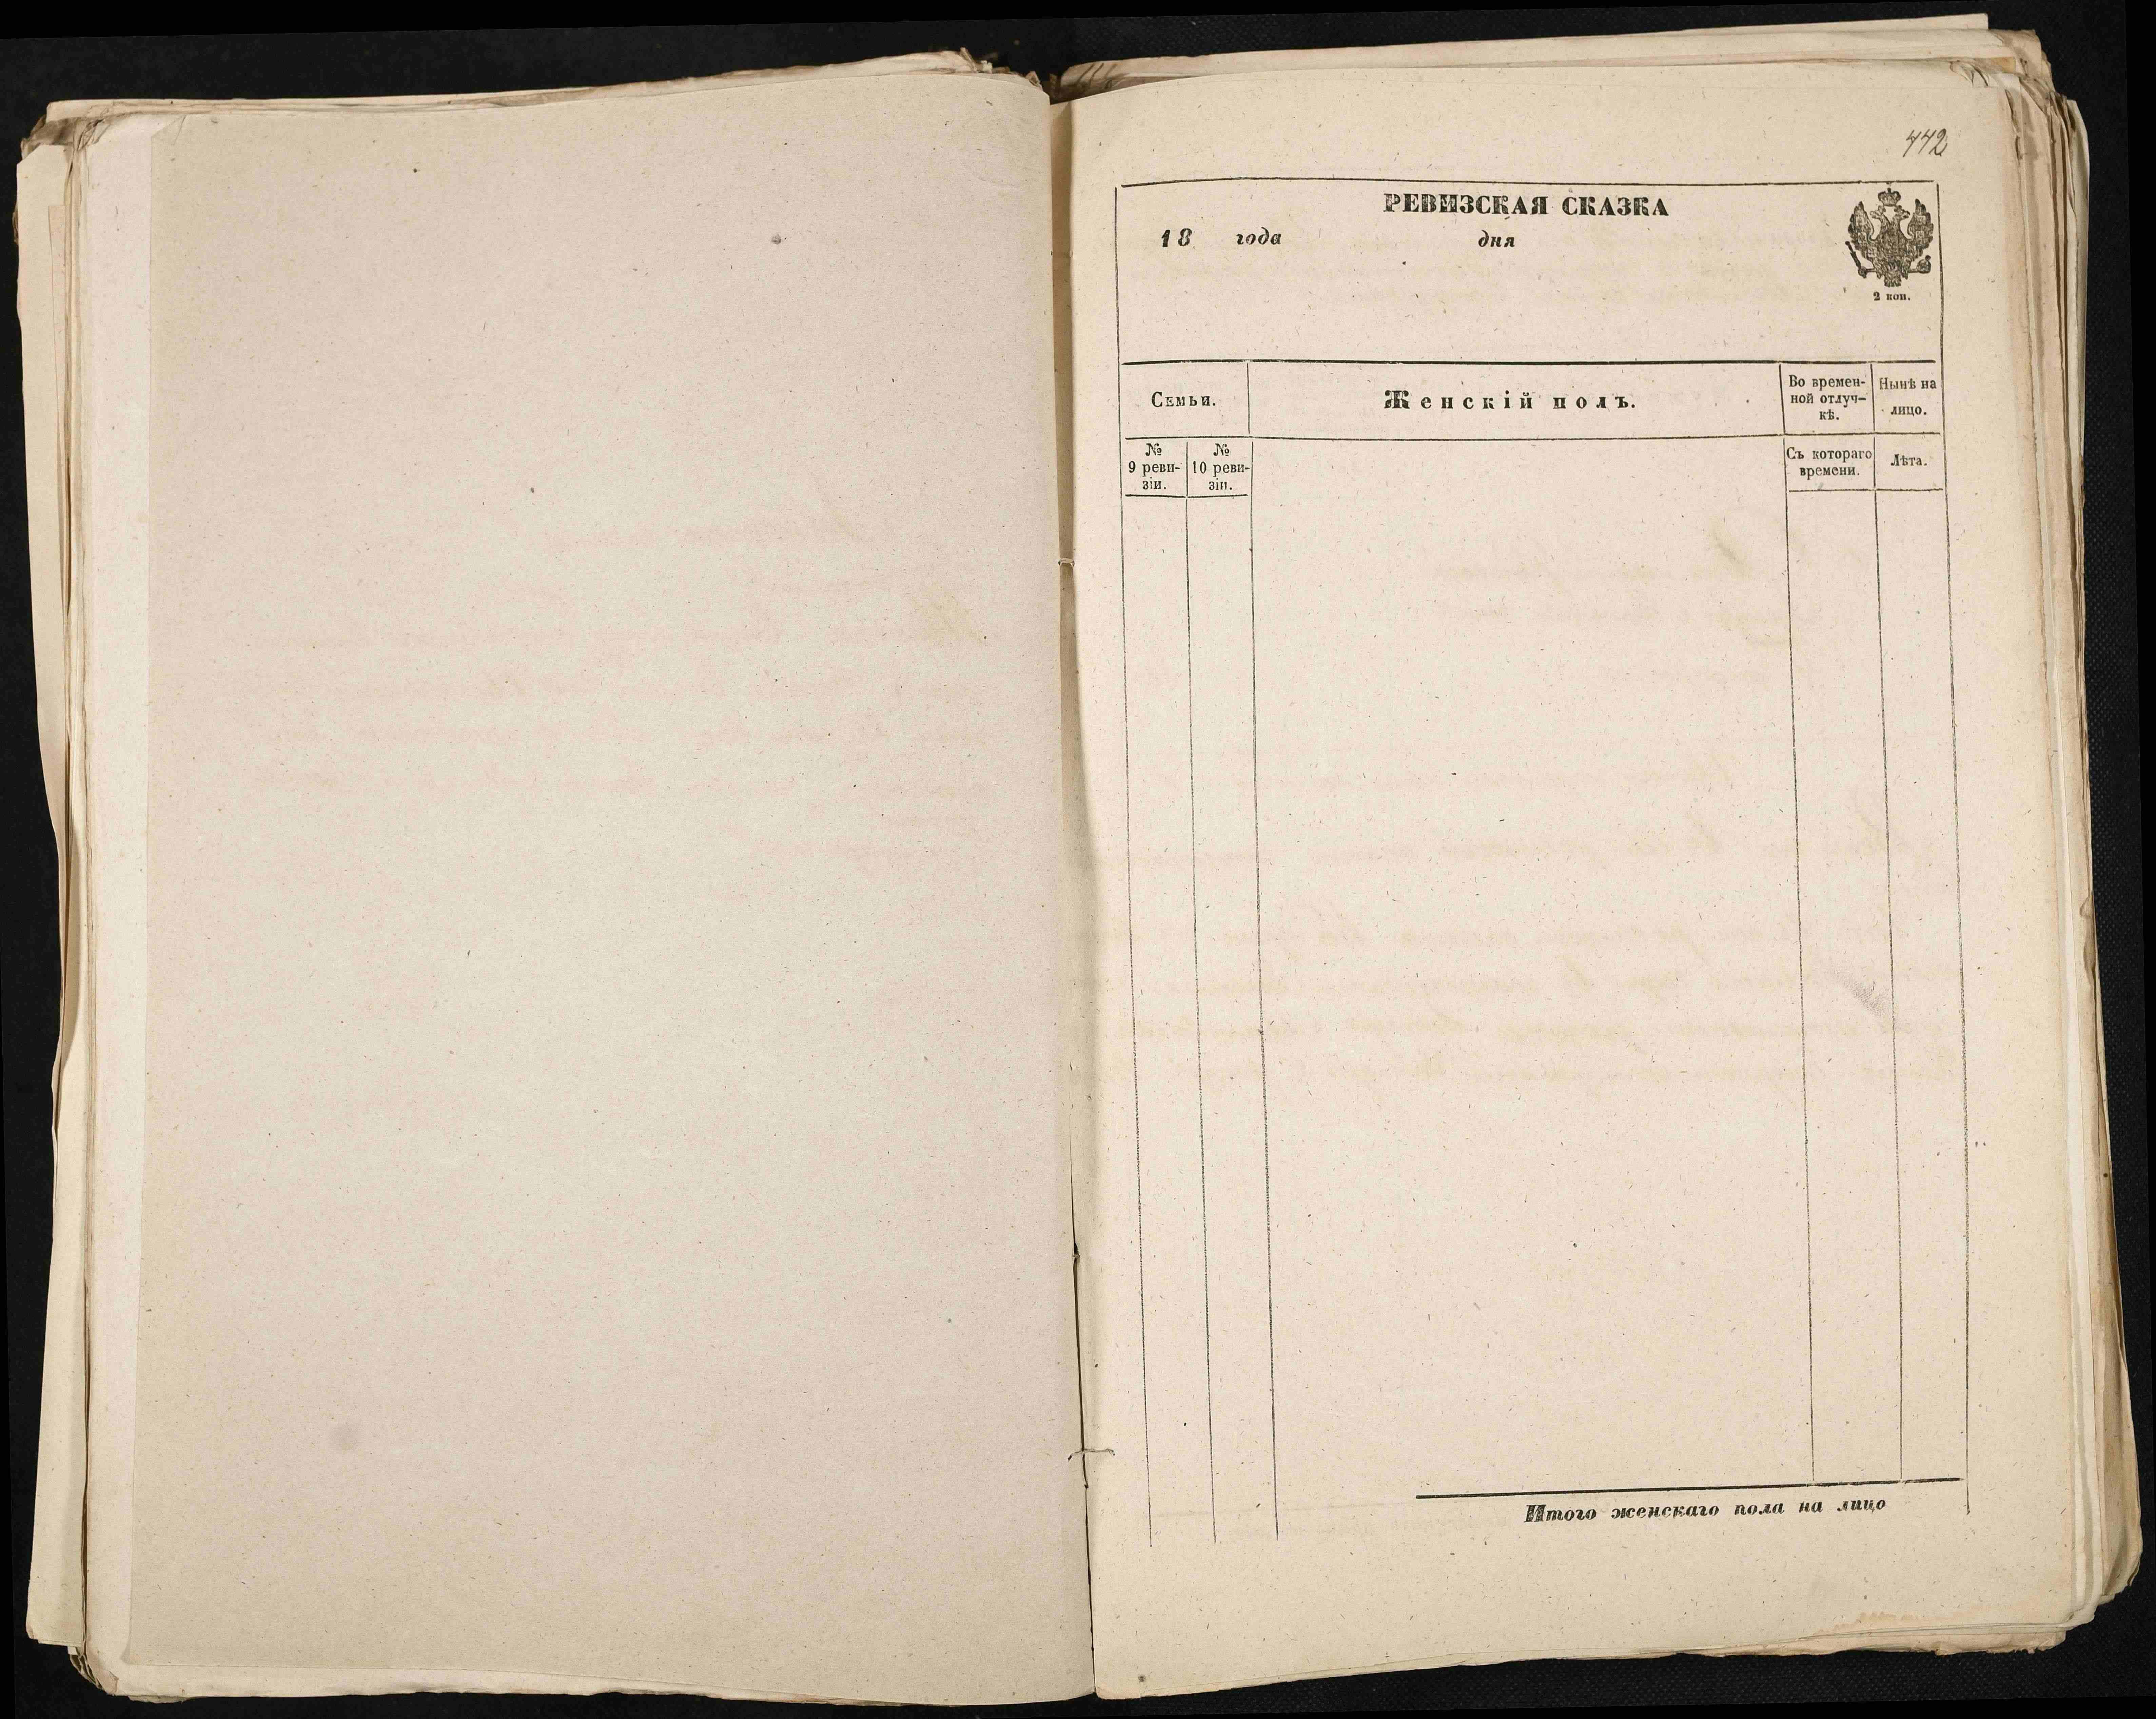 442
РЕВИЗСКАЯ СКАЗКА
18 года дня
2 коп.
Семьи.
Женскій полъ.
Во времен-
ной отлуч-
кѣ.
Нынѣ на
лицо.
№
9 реви-
зіи.
№
10 реви-
зіи.
Съ котораго
времени.
Лѣта.
Итого женскаго пола на лицо